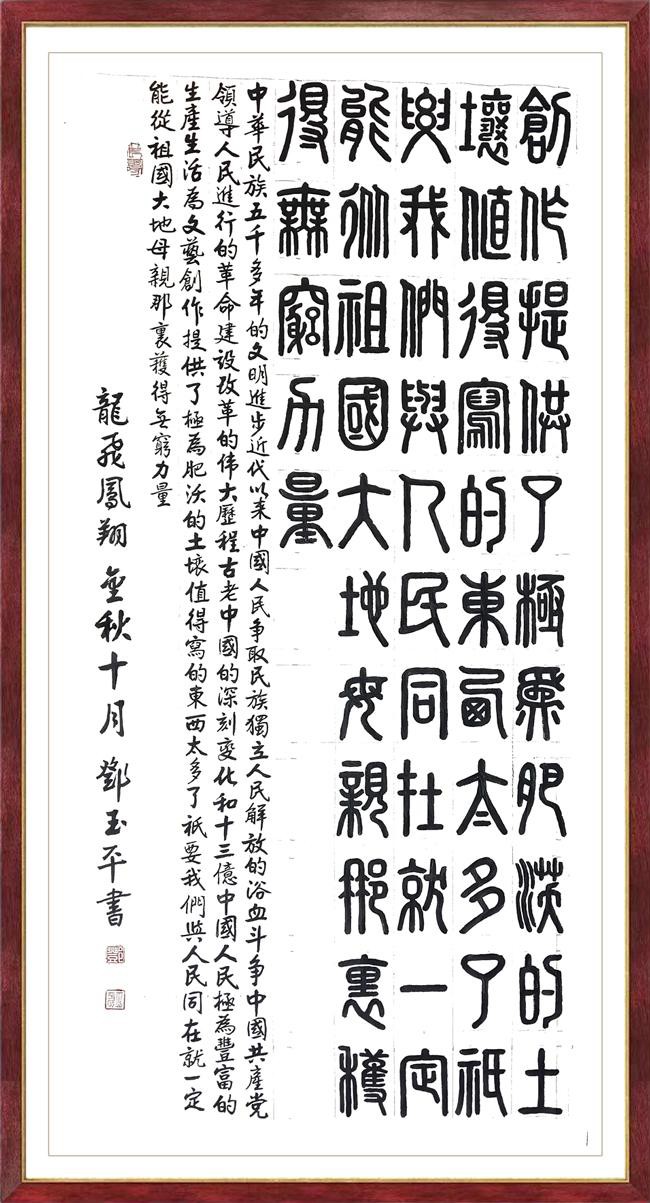 創作提供了極為肥沃的土
壤值得寫的東西太多了祇
要我們與人民同在就一定
能從祖國大地母親那裏穫
得無窮力量
中華民族五千多年的文明進步近代以来中國人民争取民族獨立人民解放的浴血斗争中國共產党
領導人民進行的革命建設改革的偉大歷程古老中國的深刻變化和十三億中國人民極為豐富的
生產生活為文藝創作提供了極為肥沃的土壤值得寫的東西太多了祇要我們與人民同在就一定
能從祖國大地母親那裏獲得無窮力量
龍飛鳳翔 金秋十月 鄧玉平書